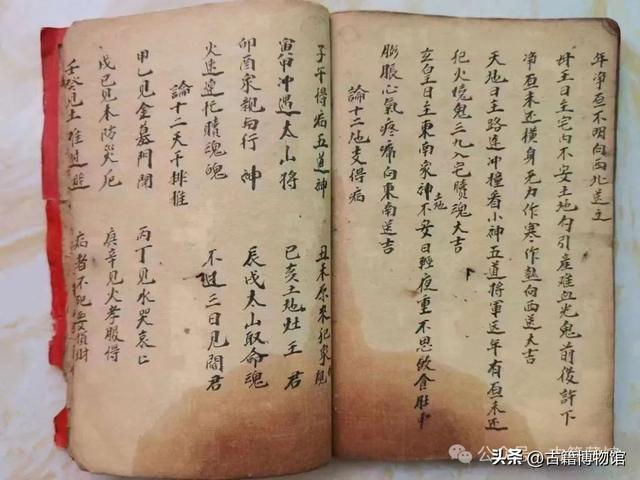 年净亙不明向西北送之
母王日主宅内不安土地勾引產难血光鬼前後許下
净亙未还横身无力作寒作熱向西送大吉
天地日主路途冲撞看小神五道将軍送年有亙未还
犯火燒鬼三九入宅贖魂大吉
玄皇日主東南家神土地不安日輕夜重不思飲食肚中
膨脹心氣疼痛向東南送吉
論十二地支得病
子午得病五道神 丑未原來犯家親
寅申冲遇太山将 巳亥土地灶王君
卯酉家親为行神 辰戌太山取命魂
火速送他贖魂魄 不过三日見閻君
論十二天干排推
甲乙見金墓門開 丙丁見水哭哀
戊己見木防災厄 庚辛見火孝服得
壬癸見土难 病者不死要損財
公众号
头条 @古籍博物馆